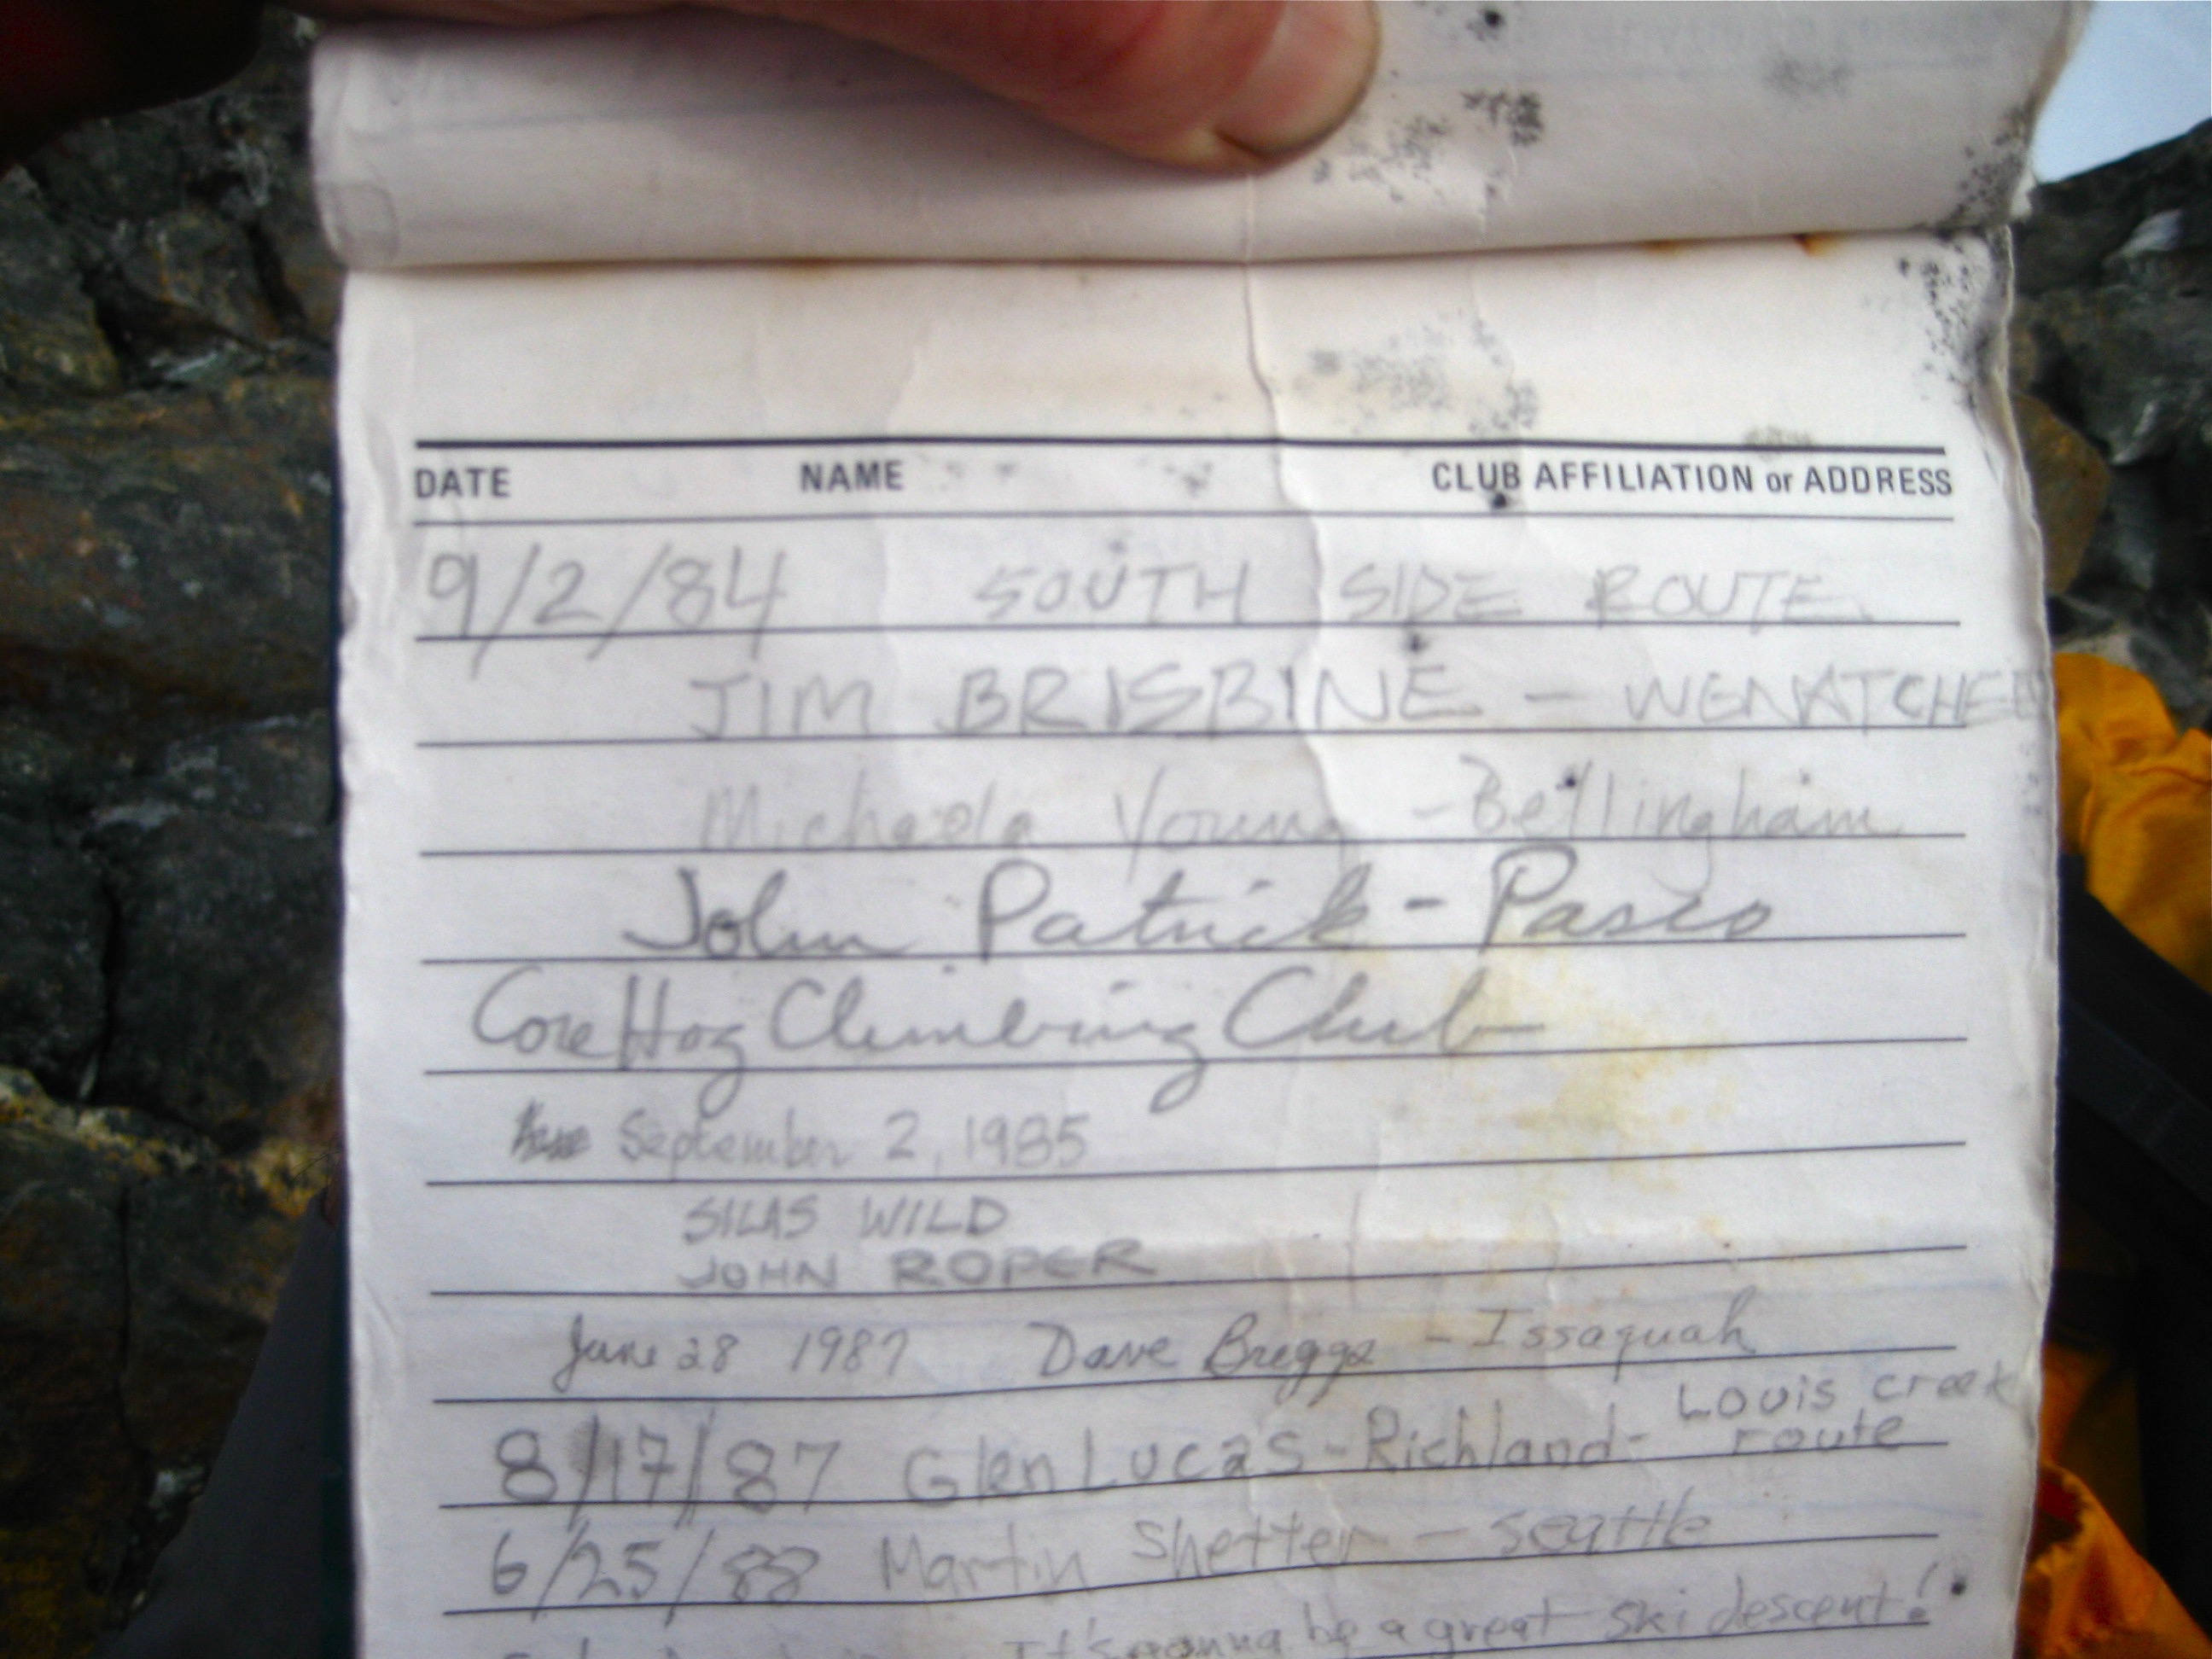 DATE NAME CLUB AFFILIATION or ADDRESS
9/2/84 SOUTH SIDE ROUTE
JIM BRISBINE - WENATCHEE
Michaela Young - Bellingham
John Patrick - Pasco
CoreHog Climbing Club
September 2, 1985
SILAS WILD
JOHN ROPER
June 28 1987 Dave Briggs - Issaquah
8/17/87 Glen Lucas - Richland - Louis creek
route
6/25/88 Martin Shetter - Seattle
It's gonna be a great ski descent!